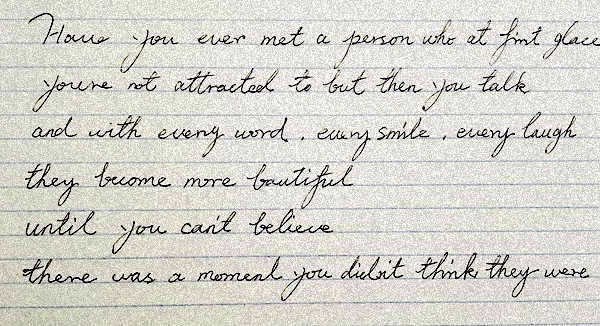 Have you ever met a person who at first glace
you're not attracted to but then you talk
and with every word, every smile, every laugh
they become more bautiful
until you can't believe
there was a moment you didn't think they were